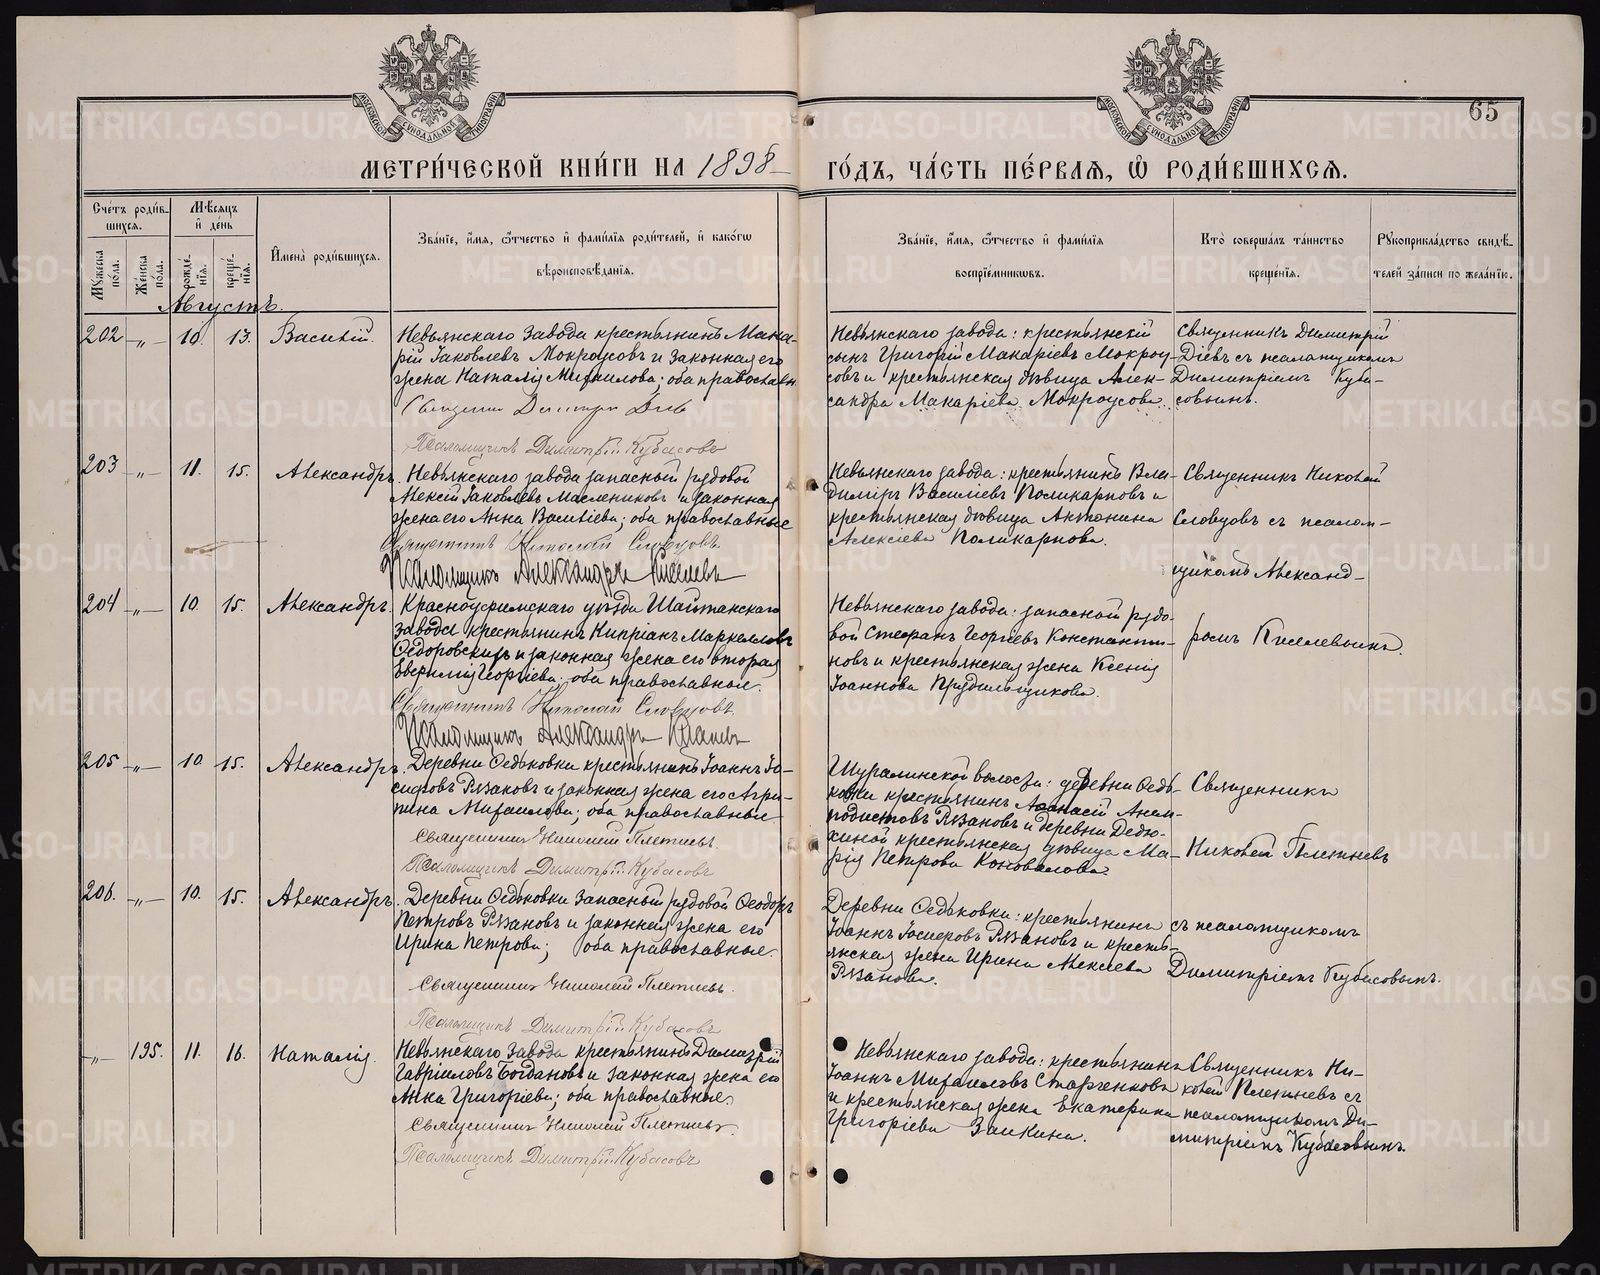 65
МЕТРИ́ЧЕСКОЙ КНИ́ГИ НА 1898
ГО́ДЪ, ЧА́СТЬ ПЕ́РВАѦ, Ѡ҆ РОДИ́ВШИХСѦ.
Сче́тъ роди́в-
шихся.
Мѣ́сяцъ
и҆ де́нь
Му́жеска
по́ла.
Же́нска
по́ла.
рожде́-
нїя.
креще́-
нїя.
И҆мена̀ роди́вшихся.
Зва́нїе, и҆́мя, ѻ҆́тчество и҆ фами́лїя роди́телей, и҆ како́гѡ
вѣроисповѣ́данїя.
Зва́нїе, и҆́мя, ѻ҆́тчество и҆ фами́лїя
воспрїе́мниковъ.
Кто̀ соверша́лъ та́инство
креще́нїя.
Рꙋкоприкла́дство свидѣ́-
телей за́писи по жела́нїю.
Августъ.
202 -„- 10. 13. Василій.
Невьянскаго завода крестьянинъ Мака-
рій Іаковлевъ Мокроусовъ и законная его
жена Наталія Михаилова; оба православн
Псаломщикъ Димитрій Кубасовъ
Невьянскаго завода: крестьянскій
сынъ Григорій Макаріевъ Мокроу-
совъ и крестьянская дѣвица Алек-
сандра Макаріева Мокроусова.
Священникъ Димитрій
Діевъ съ псаломщикомъ
Димитріемъ Куба-
совымъ.
203 -„- 11. 15. Александръ.
Невьянскаго завода запасной рядовой
Алексій Іаковлевъ Маслениковъ и законная
жена его Анна Василіева; оба православные
Священникъ Николай Словцовъ.
Псаломщикъ Александръ Киселевъ
Невьянскаго завода: крестьянинъ Вла-
димиръ Василіевъ Поликарповъ и
крестьянская дѣвица Антонина
Алексіева Поликарпова.
Священникъ Николай
Словцовъ съ псалом-
щикомъ Александ-
204 -„- 10. 15. Александръ.
Красноуфимскаго уѣзда Шайтанскаго
завода крестьянинъ Кипріанъ Маркелловъ
Ѳедоровскихъ и законная жена его вторая
Евфимія Георгіева; оба православные.
Священникъ Николай Словцовъ.
Псаломщикъ Александръ Киселевъ
Невьянскаго завода: запасной рядо-
вой Стефанъ Георгіевъ Константи-
новъ и крестьянская жена Ксенія
Іоаннова Прудильщикова.
ромъ Киселевымъ.
205 -„- 10 15. Александръ.
Деревни Ѳедьковки крестьянинъ Іоаннъ Іо-
сифовъ Рязановъ и законная жена его Агри-
пина Михаилова; оба православные
Священникъ Николай Плетневъ.
Псаломщикъ Димитрій Кубасовъ
Шуралинской волости: деревни Ѳедь-
ковки крестьянинъ Аѳанасій Анем-
подистовъ Рязановъ и деревни Дедю-
хиной крестьянская дѣвица Ма-
рія Петрова Коновалова.
Священникъ
Николай Плетневъ
206. -„- 10. 15. Александръ.
Деревни Ѳедьковки запасный рядовой Ѳеодоръ
Петровъ Рязановъ и законная жена его
Ирина Петрова; оба православные.
Священникъ Николай Плетневъ.
Псаломщикъ Димитрій Кубасовъ
Деревни Ѳедьковки: крестьянинъ
Іоаннъ Іосифовъ Рязановъ и кресть-
янская жена Ирина Алексіева
Рязанова.
съ псаломщикомъ
Димитріемъ Кубасовымъ.
-„- 195. 11. 16. Наталія.
Невьянскаго завода крестьянинъ Димитрій
Гавріиловъ Богдановъ и законная жена его
Анна Григоріева; оба православные.
Священникъ Николай Плетневъ.
Псаломщикъ Димитрій Кубасовъ
Невьянскаго завода: крестьянинъ
Іоаннъ Михаиловъ Старченковъ
и крестьянская жена Екатерина
Григоріева Заикина.
Священникъ Ни-
колай Плетневъ съ
псаломщикомъ Ди-
митріемъ Кубасовымъ.